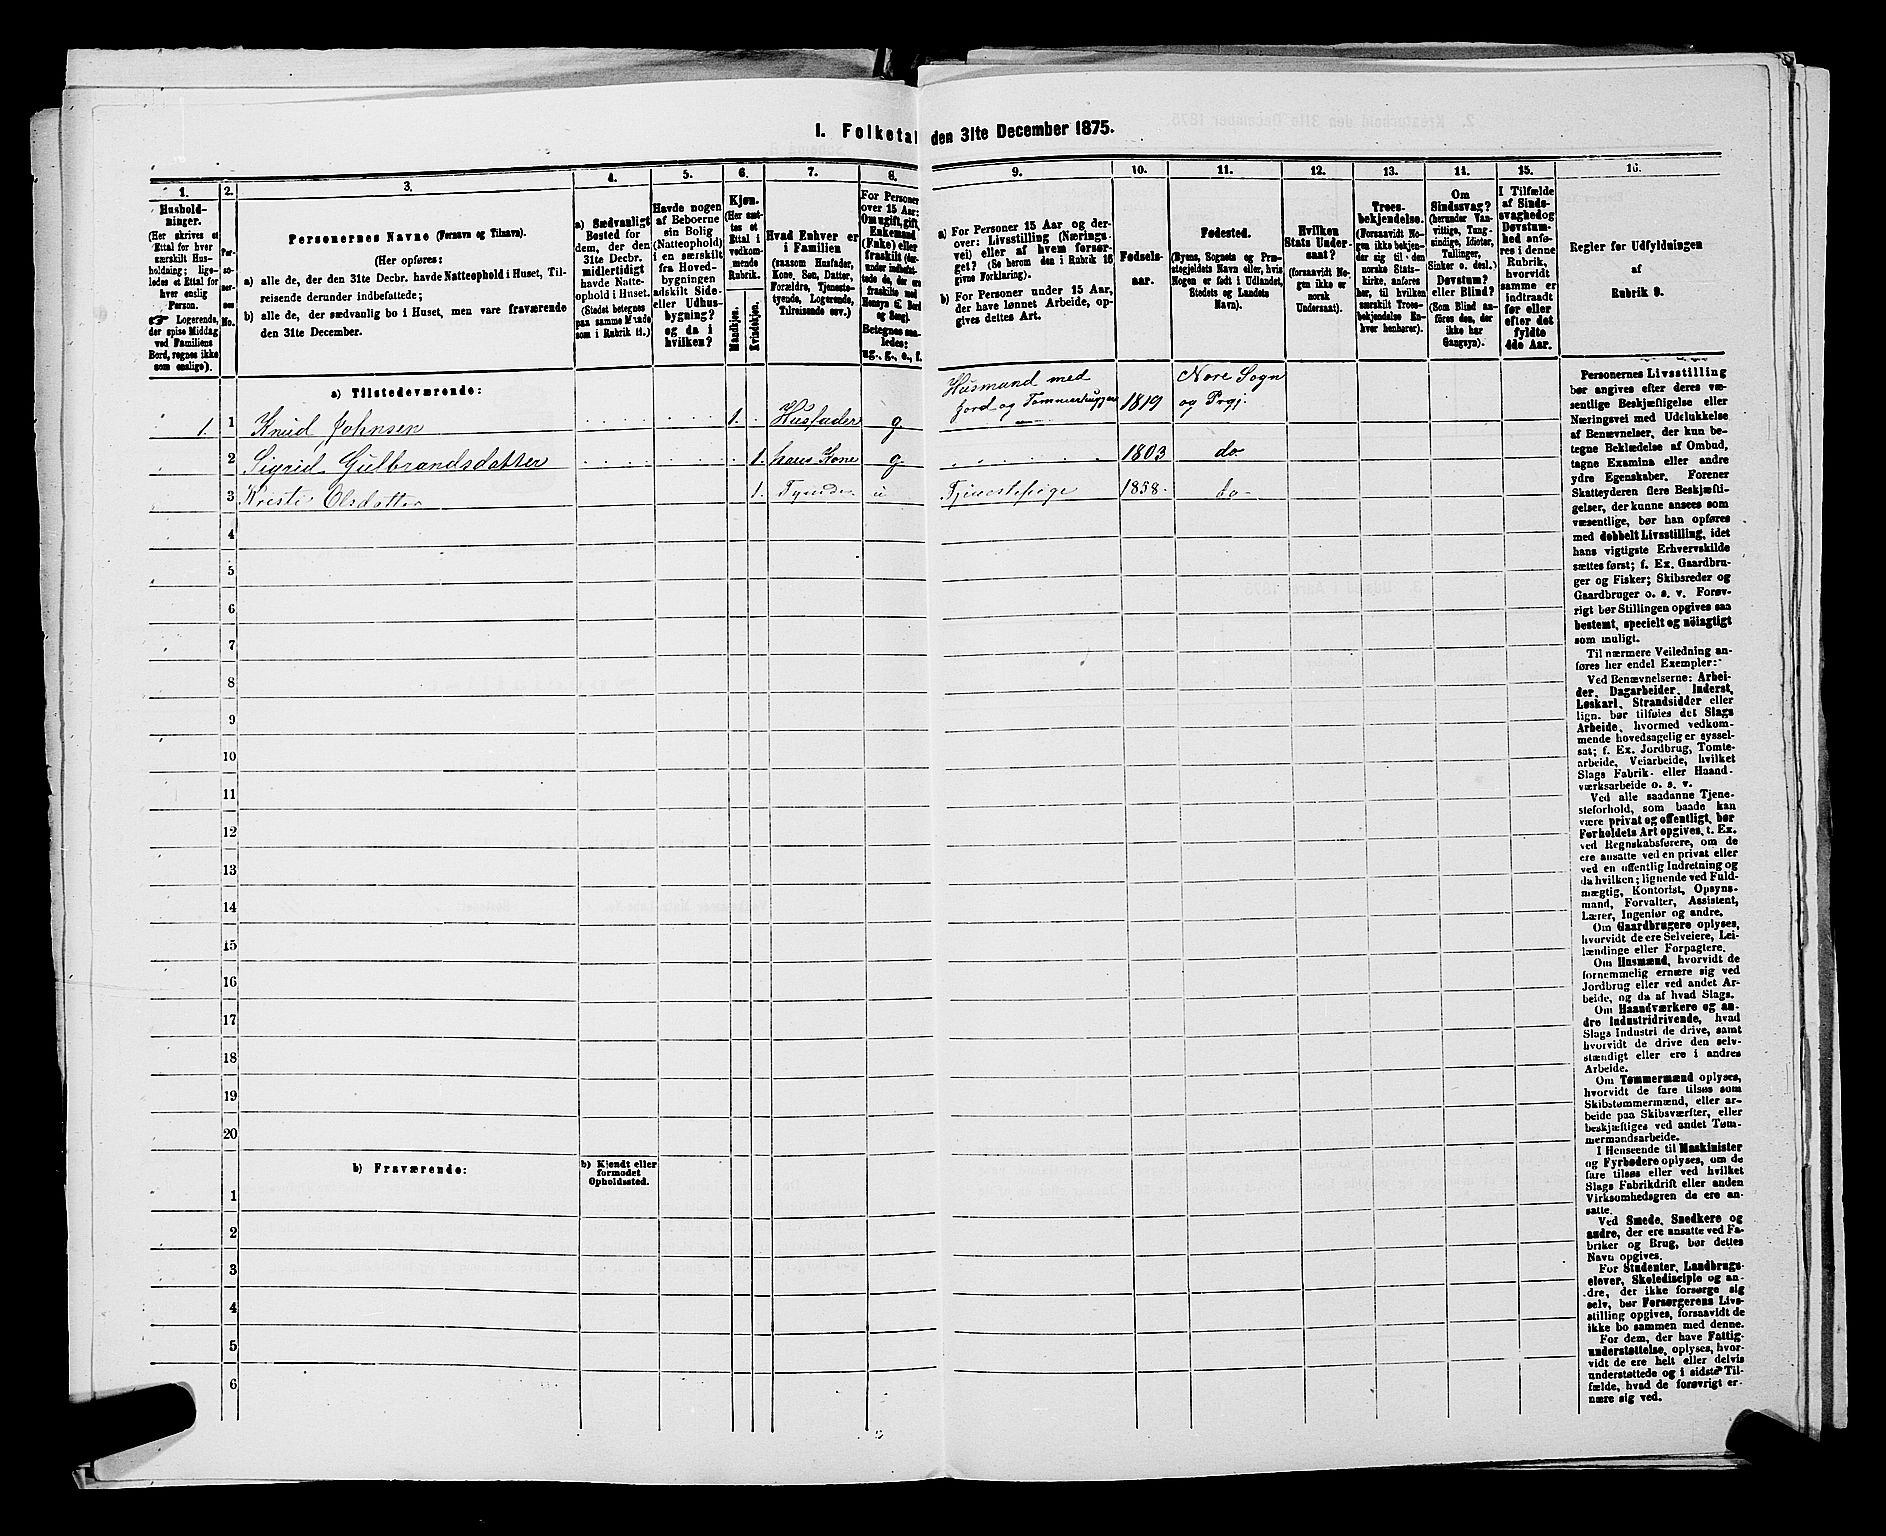 I. Folketal den 31te December 1875.
1. 2. 3. 4. 5. 6. 7. 8. 9. 10. 11. 12. 13. 14. 15. 16.
Hushold-
ninger.
(Her skrives et
Ettal for hver
særskilt Hus-
holdning; lige-
ledes et Ettal for
hver enslig
Person.
☞ Logerende,
der spise Middag
ved Familiens
Bord, regnes ikke
som enslige).
Per-
so-
ner-
nes
No.
Personernes Navne (Fornavn og Tilnavn).
(Her opføres:
a) alle de, der den 31te Decbr. havde Natteophold i Huset, Til-
reisende derunder indbefattede;
b) alle de, der sædvanlig bo i Huset, men vare fraværende
den 31te December.
a) Sædvanligt
Bosted for
dem, der den
31te Decbr.
midlertidigt
havde Natte-
ophold i Huset.
(Stedet betegnes
paa samme Maade
som i Rubrik 11.)
Havde nogen
af Beboerne
sin Bolig
(Natteophold)
i en særskilt
fra Hoved-
bygningen
adskilt Side-
eller Udhus-
bygning?
og da i
hvilken?
Kjøn.
(Her sæt-
tes et
Ettal i
vedkom-
mende
Rubrik.
Mandkjøn.
Kvindekjøn.
Hvad Enhver er
i Familien
(saasom Husfader,
Kone, Søn, Datter,
Forældre, Tjeneste-
tyende, Logerende,
Tilreisende osv.)
For Personer
over 15 Aar:
Om ugift, gift,
Enkemand
(Enke) eller
fraskilt (der-
under indbefat-
tede de, der ere
fraskilte med
Hensyn til Bord
og Seng).
Betegnes saa-
ledes:
ug., g., e., f.
a) For Personer 15 Aar og der-
over: Livsstilling (Nærings-
vei) eller af hvem forsør-
get? (Se herom den i Rubrik 16
givne Forklaring).
b) For Personer under 15 Aar,
der have lønnet Arbeide, op-
gives dettes Art.
Fødsels-
aar.
Fødested.
(Byens, Sognets og Præ-
stegjeldets Navn eller, hvis
Nogen er født i Udlandet,
Stedets og Landets
Navn).
Hvilken
Stats Under-
saat?
(forsaavidt No-
gen ikke er
norsk
Undersaat).
Troes-
bekjendelse.
(Forsaavidt No-
gen ikke bekjen-
der sig til den
norske Stats-
kirke, anføres
her, til hvilken
særskilt Troes-
bekjendelse En-
hver henhører).
Om
Sindssvag?
(herunder Van-
vittige, Tung-
sindige, Idioter,
Tullinger,
Sinker o. desl.)
Døvstum?
eller Blind?
(Som Blind an-
føres den, der
ikke har
Gangsyn).
I Tilfælde
af Sinds-
svaghed og
Døvstum-
hed anfø-
res i denne
Rubrik,
hvorvidt
samme er
indtraadt
før eller
efter det
fyldte
4de Aar.
Regler for Udfyldningen
af
Rubrik 9.
a) Tilstedeværende:
1. 1 Knud Johnsen 1. Husfader g Husmand med Jord og Tømmerhugger 1819 Nore Sogn og Prgj.
2 Sigrid Gulbrandsdatter 1. hans Kone g 1803 do
3 Kristi Olsdatter 1. Tyende u Tjenestepige 1858 do
4
5
6
7
8
9
10
11
12
13
14
15
16
17
18
19
20
b) Fraværende:
b) Kjendt eller
formodet
Opholdssted.
1
2
3
4
5
6
Personernes Livsstilling
bør angives efter deres væ-
sentlige Beskjæftigelse eller
Næringsvei med Udelukkelse
af Benævnelser, der kun be-
tegne Beklædelse af Ombud,
tagne Examina eller andre
ydre Egenskaber. Forener
Skatteyderen flere Beskjæfti-
gelser, der kunne ansees som
væsentlige, bør han opføres
med dobbelt Livsstilling, idet
hans vigtigste Erhvervskilde
sættes først; f. Ex. Gaardbru-
ger og Fisker; Skibsreder og
Gaardbruger o. s. v. Forøv-
rigt bør Stillingen opgives saa
bestemt, specielt og nøiagtigt
som muligt.
Til nærmere Veiledning an-
føres her endel Exempler:
Ved Benævnelserne: Arbei-
der, Dagarbeider, Inderst,
Løskarl, Strandsidder eller
lign. bør tilføies det Slags
Arbeide, hvormed vedkom-
mende hovedsagelig er syssel-
sat; f. Ex. Jordbrug, Tomte-
arbeide, Veiarbeide, hvilket
Slags Fabrik- eller Haand-
værksarbeide o. s. v.
Ved alle saadanne Tjene-
steforhold, som baade kan
være privat og offentligt, bør
Forholdets Art opgives, t. Ex.
ved Regnskabsførere, om de
ere ansatte ved en privat eller
ved en offentlig Indretning og
da hvilken; lignende ved Fuld-
mægtig, Kontorist, Opsyns-
mand, Forvalter, Assistent,
Lærer, Ingeniør og andre.
Om Gaardbrugere oplyses,
hvorvidt de ere Selveiere, Lei-
lændinge eller Forpagtere.
Om Husmænd, hvorvidt de
fornemmelig ernære sig ved
Jordbrug eller ved andet Ar-
beide, og da af hvad Slags.
Om Haandværkere og an-
dre Industridrivende, hvad
Slags Industri de drive, samt
hvorvidt de drive den selv-
stændigt eller ere i andres
Arbeide.
Om Tømmermænd oplyses,
hvorvidt de fare tilsøs som
Skibstømmermænd, eller ar-
beide paa Skibsværfter, eller
beskjæftiges ved andet Tøm-
mermandsarbeide.
I Henseende til Maskinister
og Fyrbødere oplyses, om de
fare tilsøs eller ved hvilket
Slags Fabrikdrift eller anden
Virksomhedsgren de ere an-
satte.
Ved Smede, Snedkere og
andre, der ere ansatte ved Fa-
briker og Brug, bør dettes
Navn opgives.
For Studenter, Landbrugs-
elever, Skoledisciple og an-
dre, der ikke forsørge sig
selv, bør Forsørgerens Livs-
stilling opgives, forsaavidt de
ikke bo sammen med denne.
For dem, der have Fattig-
understøttelse, oplyses, hvor-
vidt de ere helt eller delvis
understøttede og i sidste Til-
fælde, hvad de forøvrigt er-
nære sig ved.